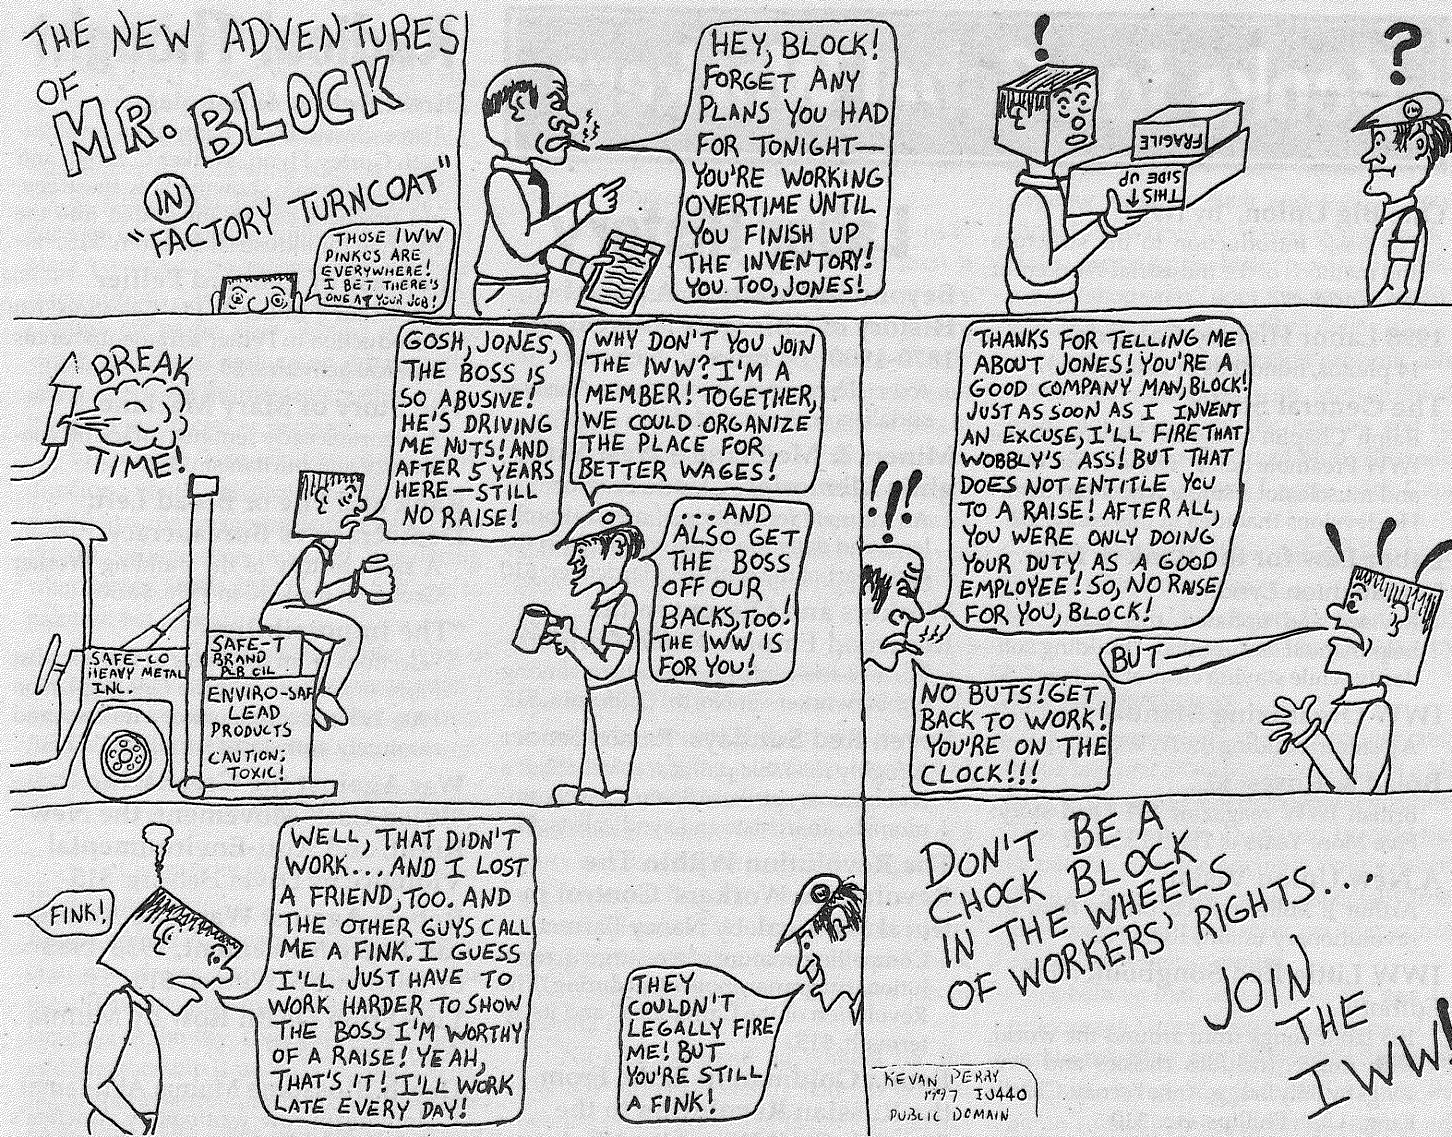 THE NEW ADVENTURES
OF
MR. BLOCK
IN
"FACTORY TURNCOAT"
THOSE IWW
PINKOS ARE
EVERYWHERE!
I BET THERE'S
ONE AT YOUR JOB!
HEY, BLOCK!
FORGET ANY
PLANS YOU HAD
FOR TONIGHT—
YOU'RE WORKING
OVERTIME UNTIL
YOU FINISH UP
THE INVENTORY!
YOU TOO, JONES!
!
FRAGILE
THIS
SIDE UP
?
BREAK
TIME!
GOSH, JONES,
THE BOSS IS
SO ABUSIVE!
HE'S DRIVING
ME NUTS! AND
AFTER 5 YEARS
HERE—STILL
NO RAISE!
WHY DON'T YOU JOIN
THE IWW? I'M A
MEMBER! TOGETHER,
WE COULD ORGANIZE
THE PLACE FOR
BETTER WAGES!
...AND
ALSO GET
THE BOSS
OFF OUR
BACKS, TOO!
THE IWW IS
FOR YOU!
SAFE-CO
HEAVY METAL
INC.
SAFE-T
BRAND
PCB OIL
ENVIRO-SAF
LEAD
PRODUCTS
CAUTION:
TOXIC!
!!
THANKS FOR TELLING ME
ABOUT JONES! YOU'RE A
GOOD COMPANY MAN, BLOCK!
JUST AS SOON AS I INVENT
AN EXCUSE, I'LL FIRE THAT
WOBBLY'S ASS! BUT THAT
DOES NOT ENTITLE YOU
TO A RAISE! AFTER ALL,
YOU WERE ONLY DOING
YOUR DUTY AS A GOOD
EMPLOYEE! SO, NO RAISE
FOR YOU, BLOCK!
!!!
BUT—
NO BUTS! GET
BACK TO WORK!
YOU'RE ON THE
CLOCK!!!
FINK!
WELL, THAT DIDN'T
WORK... AND I LOST
A FRIEND, TOO. AND
THE OTHER GUYS CALL
ME A FINK. I GUESS
I'LL JUST HAVE TO
WORK HARDER TO SHOW
THE BOSS I'M WORTHY
OF A RAISE! YEAH,
THAT'S IT! I'LL WORK
LATE EVERY DAY!
THEY
COULDN'T
LEGALLY FIRE
ME! BUT
YOU'RE STILL
A FINK!
DON'T BE A
CHOCK BLOCK
IN THE WHEELS
OF WORKERS' RIGHTS...
JOIN
THE
IWW!
KEVAN PERRY
1997 IU440
PUBLIC DOMAIN